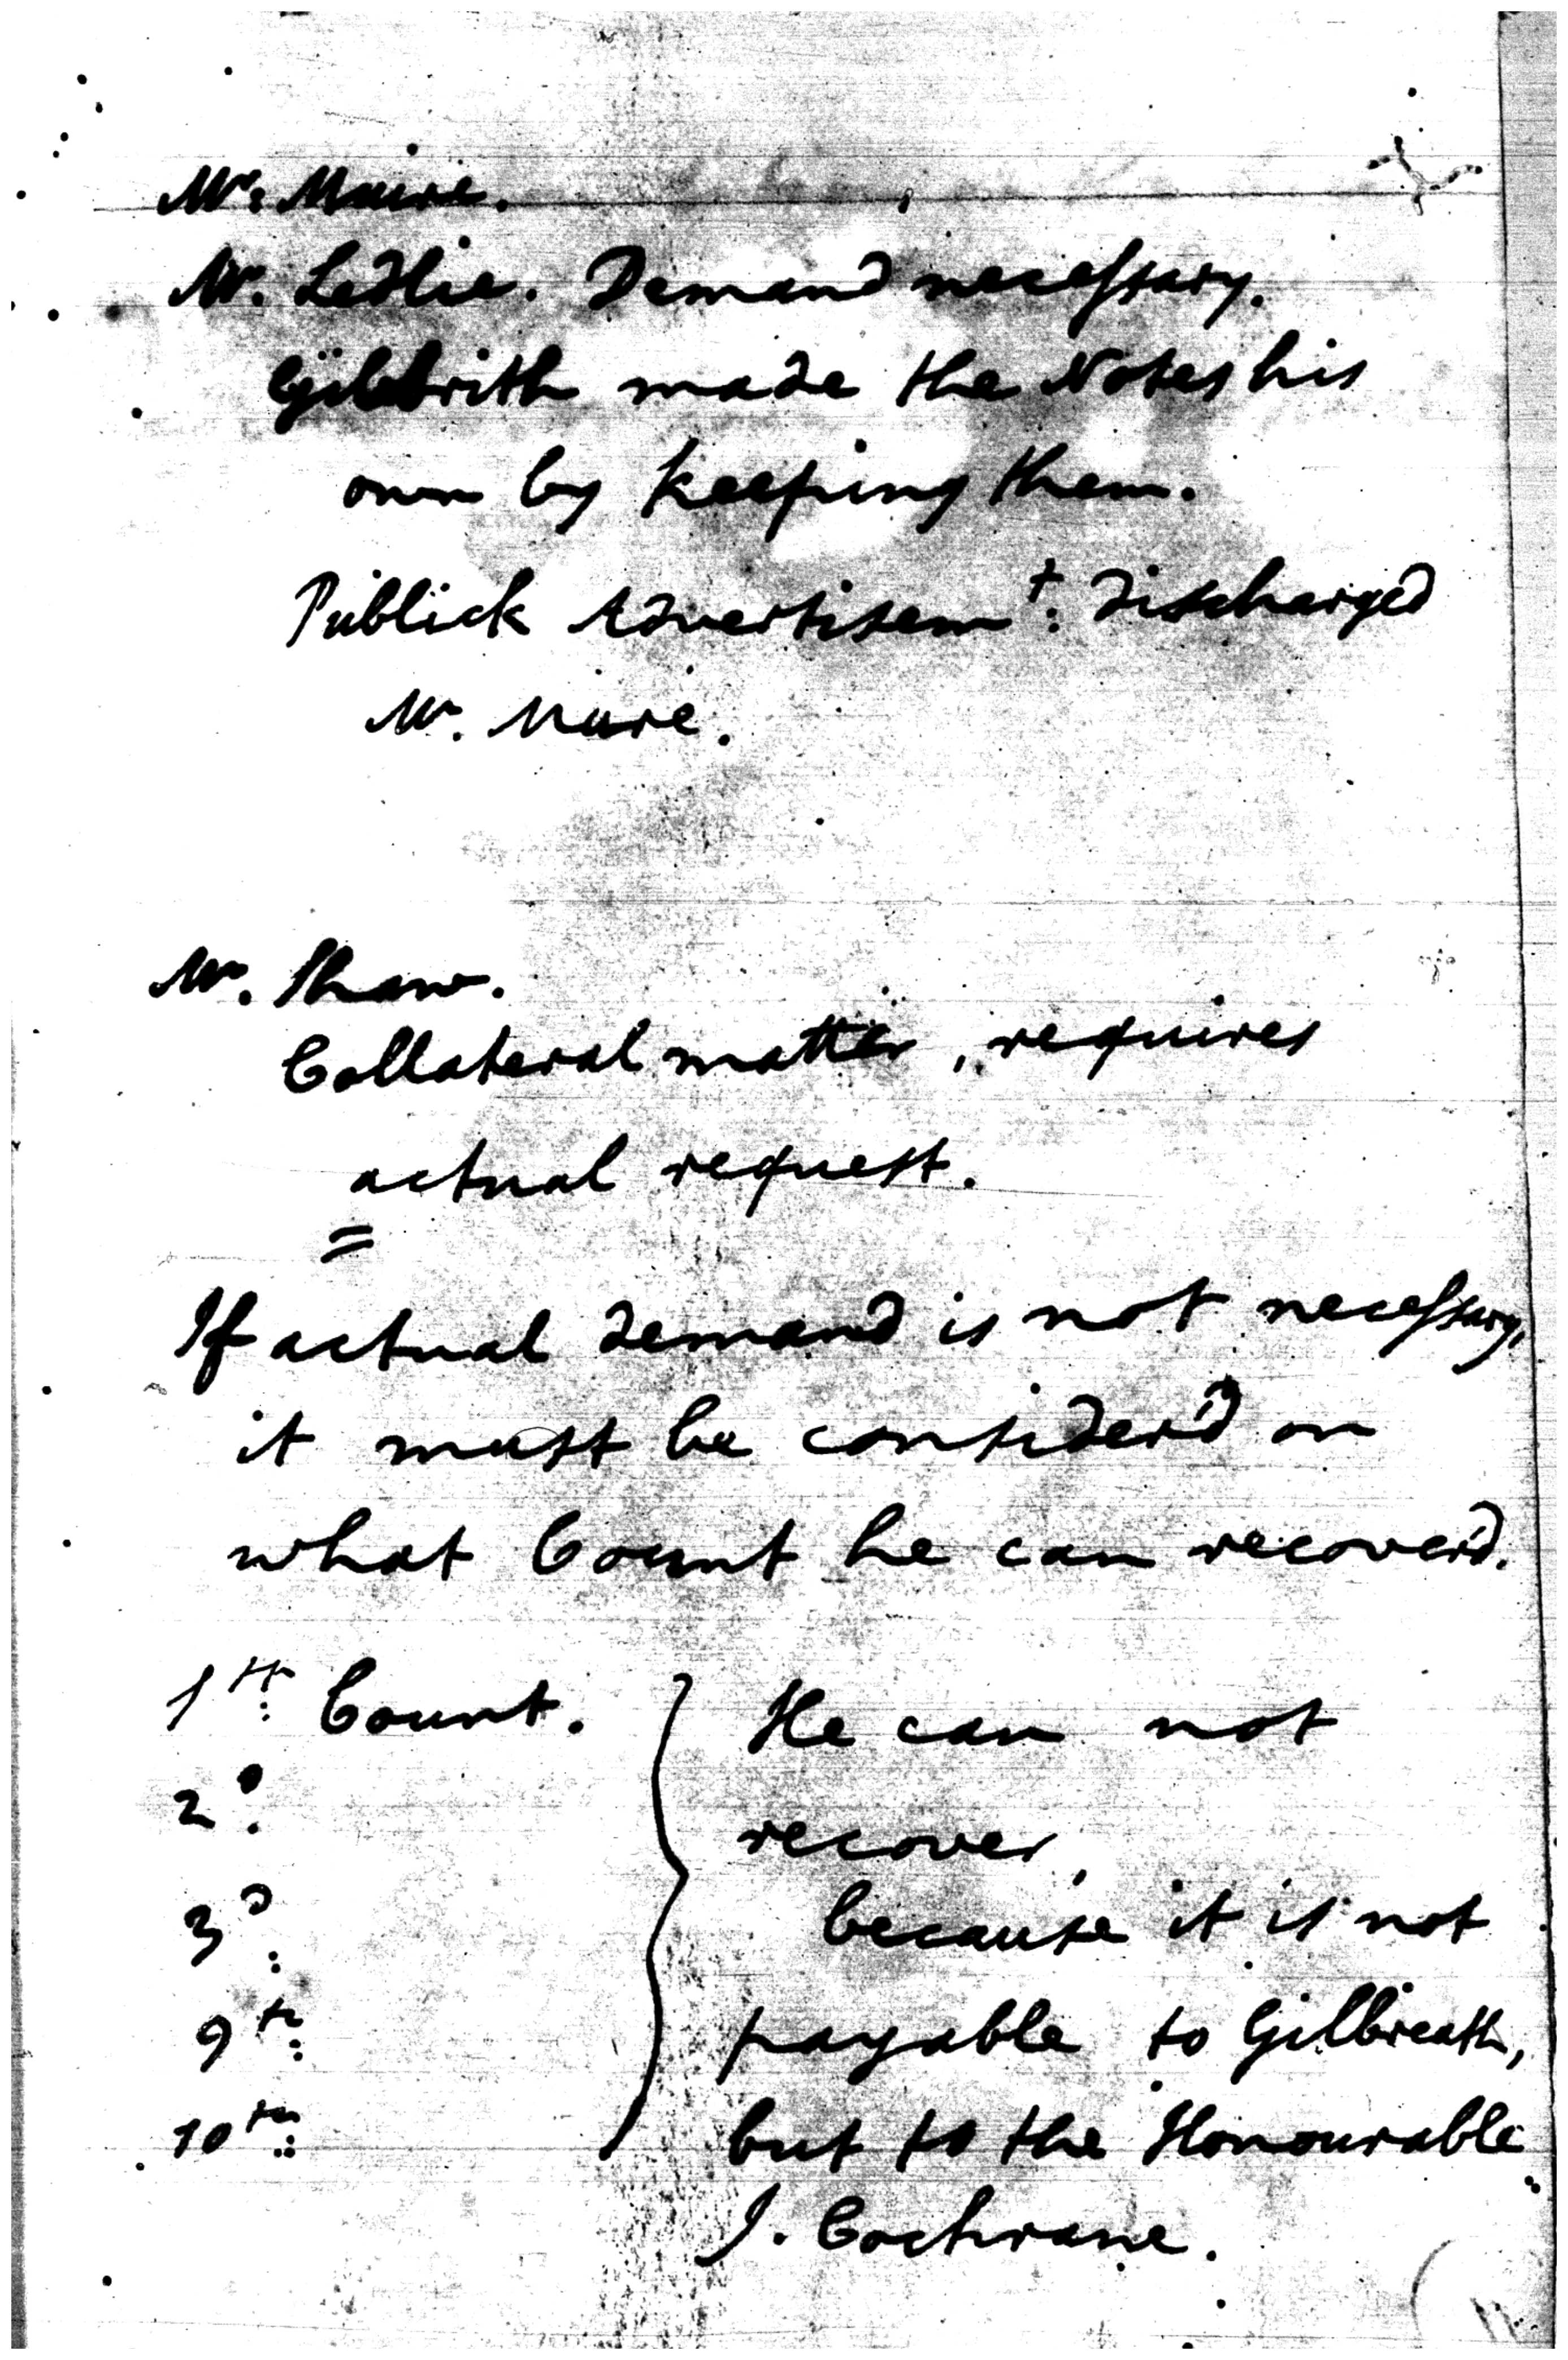 Mr. Mure.
Mr. Ledlie. Demand necessary.
Gilbrith made the Notes his
own by keeping them.
Publick Advertisemt: discharged
Mr. Mure.
Mr. Shaw.
Collateral matter, requires
actual request.
=
If actual demand is not necessary,
it must be consider'd on
what Count he can recover'd.
1st: Count. } He can not
2d.
recover,
3d: because it is not
9th: payable to Gilbreath,
10th: but to the Honourable
J. Cochrane.